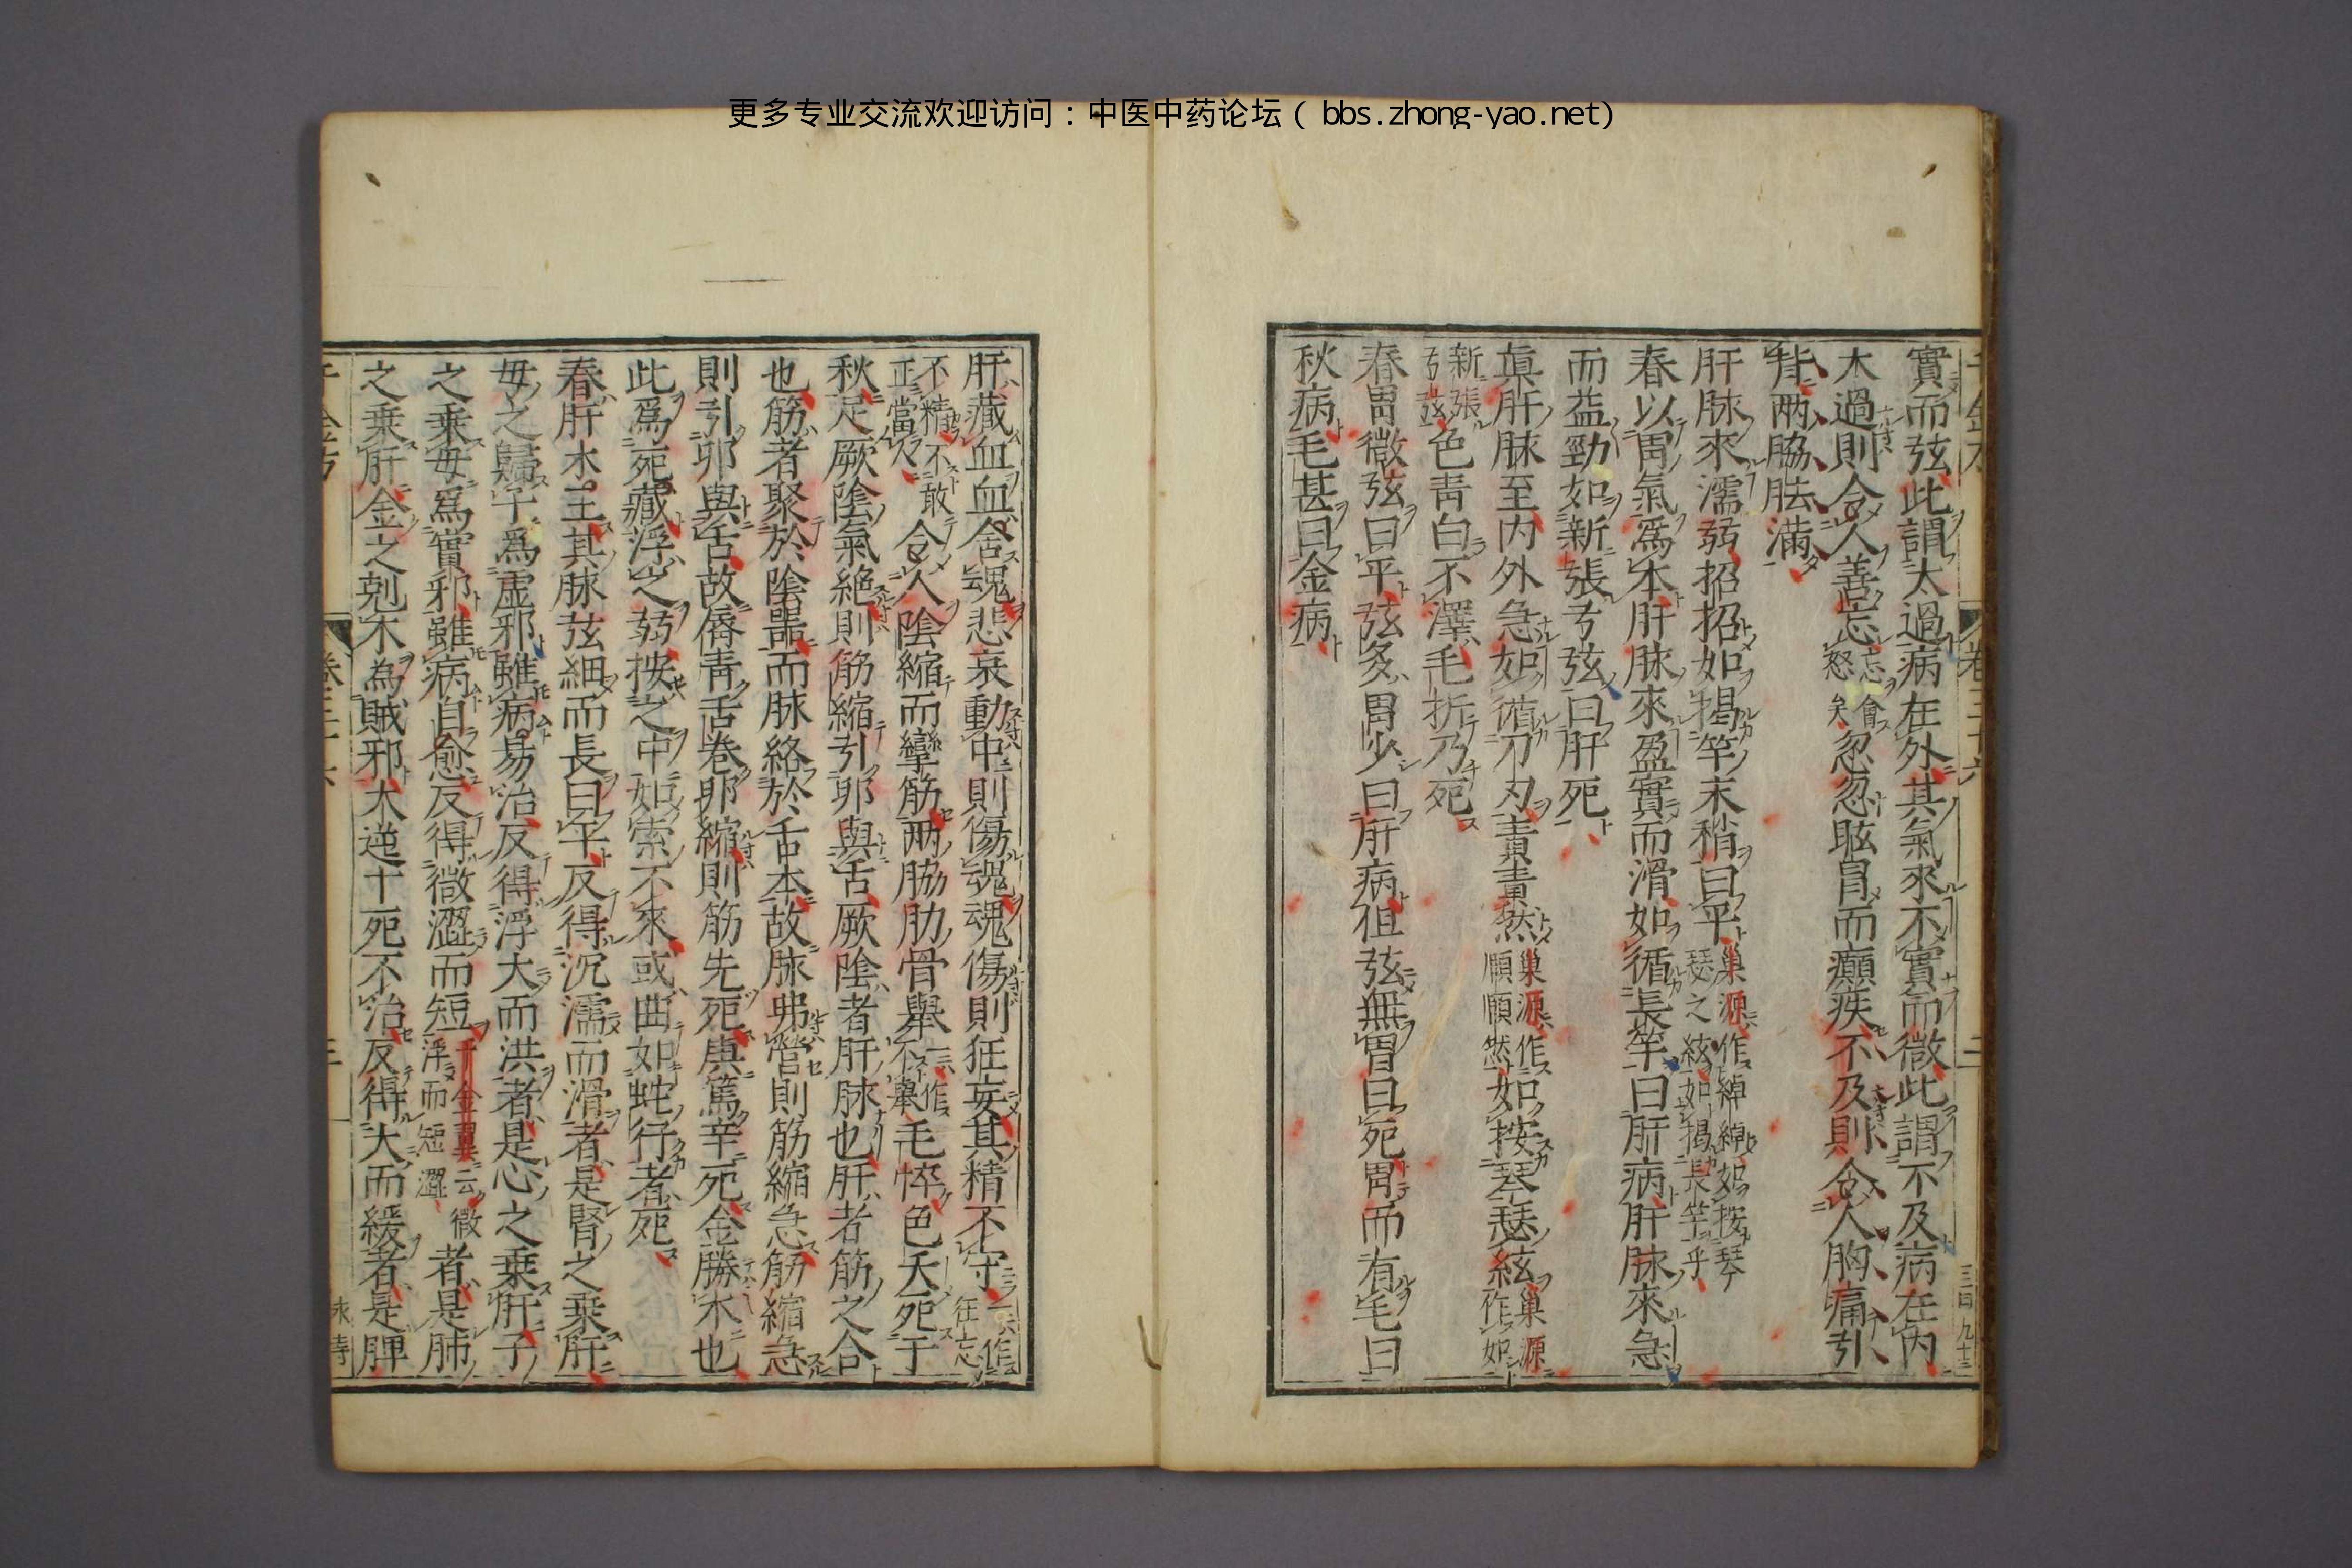 更多专业交流欢迎访问：中医中药论坛（bbs.zhong-yao.net）
實而弦此謂太過病在外其氣來不實而微此謂不及病在内
太過則令人善忘忘會怒矣忽忽眩冒而癲疾不及則令人胸痛引
背兩脇胠滿
肝脉來濡弱招招如揭竿末稍曰平巢源作綽綽如按琴瑟之絃如揭長竿
春以胃氣爲本肝脉來盈實而滑如循長竿曰肝病肝脉來急
而益勁如新張弓弦曰肝死
真肝脉至内外急如循刀刃責責然巢源作順順然如按琴瑟絃巢源作如
新張弓弦色青白不澤毛折乃死
春胃微弦曰平弦多胃少曰肝病但弦無胃曰死胃而有毛曰
秋病毛甚曰金病
肝藏血血舍魂悲哀動中則傷魂魂傷則狂妄其精不守一作狂忘
不精不敢正當人令人陰縮而攣筋兩脇肋骨舉一作不舉毛悴色夭死于
秋足厥陰氣絶則筋縮引卵與舌厥陰者肝脉也肝者筋之合
也筋者聚於陰器而脉絡於舌本故脉弗營則筋縮急筋縮急
則引卵與舌故脣青舌卷卵縮則筋先死庚篤辛死金勝木也
此爲死藏浮之弱按之中如索不來或曲如蛇行者死
春肝木王其脉弦細而長曰平反得沉濡而滑者是腎之乘肝
母之歸子爲虚邪雖病易治反得浮大而洪者是心之乘肝子
之乘母爲實邪雖病自愈反得微澀而短千金翼云微浮而短澀者是肺
之乘肝金之剋木為賊邪大逆十死不治反得大而緩者是脾